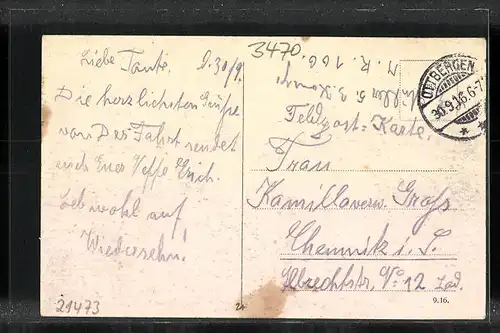 Liebe Tante.
D. 30/9.
Die herzlichsten Grüße
von Der Fahrt sendet
euch Euer Neffe Erich.
Leb wohl auf
Wiedersehn!
21473
3470.
M. R. 166
OTTBERGEN
30.9.16.6-7
Feldpost=Karte.
Frau
Kamilla verw. Groß
Chemnitz i. S.
Albrechtstr. No 12 Lad.
9.16.